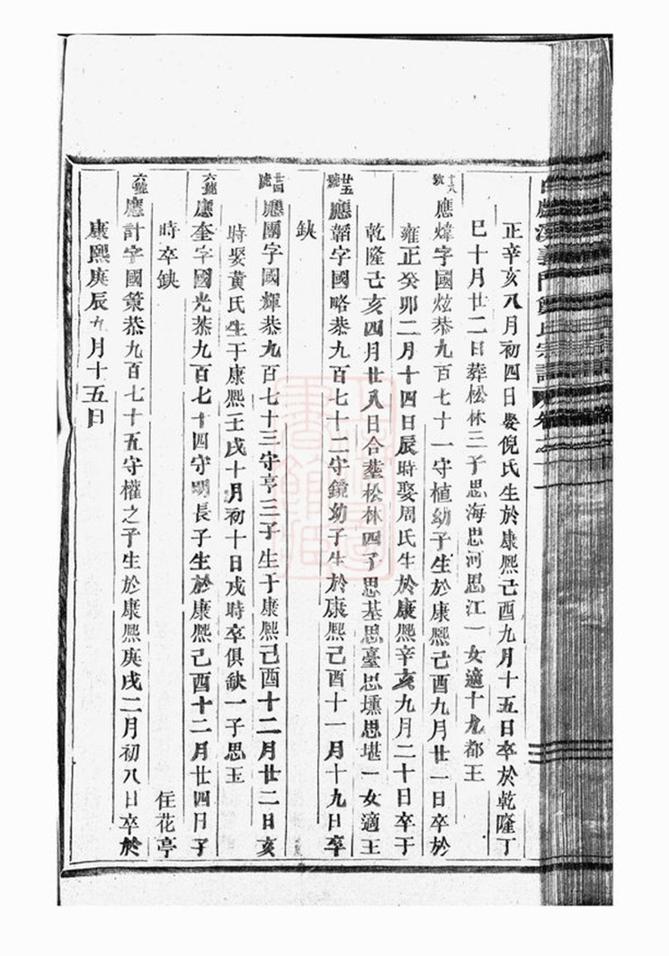 正辛亥八月初四日娶倪氏生於康熙己酉九月十五日卒於乾隆丁
巳十月廿二日葬松林三子思海思河思江一女適十九都王
十八
應煒字國炫恭九百七十一守植幼子生於康熙己酉九月廿一日卒於
雍正癸卯二月十四日辰時娶周氏生於康熙辛亥九月二十日卒于
乾隆己亥四月廿八日合塟松林四子思基思臺思壎思堪一女適王
廿五號
應韜字國略恭九百七十二守鏡幼子生於康熙己酉十一月十九日卒
缺
廿四號
應國字國輝恭九百七十三守亨三子生于康熙己酉十二月廿二日亥
時娶黃氏生于康熙壬戌十月初十日戌時卒俱缺一子思玉
六號
應奎字國光恭九百七十四守明長子生於康熙己酉十二月廿四日子
時卒缺 住花亭
六號
應計字國策恭九百七十五守權之子生於康熙庚戌二月初八日卒於
康熙庚辰九月十五日